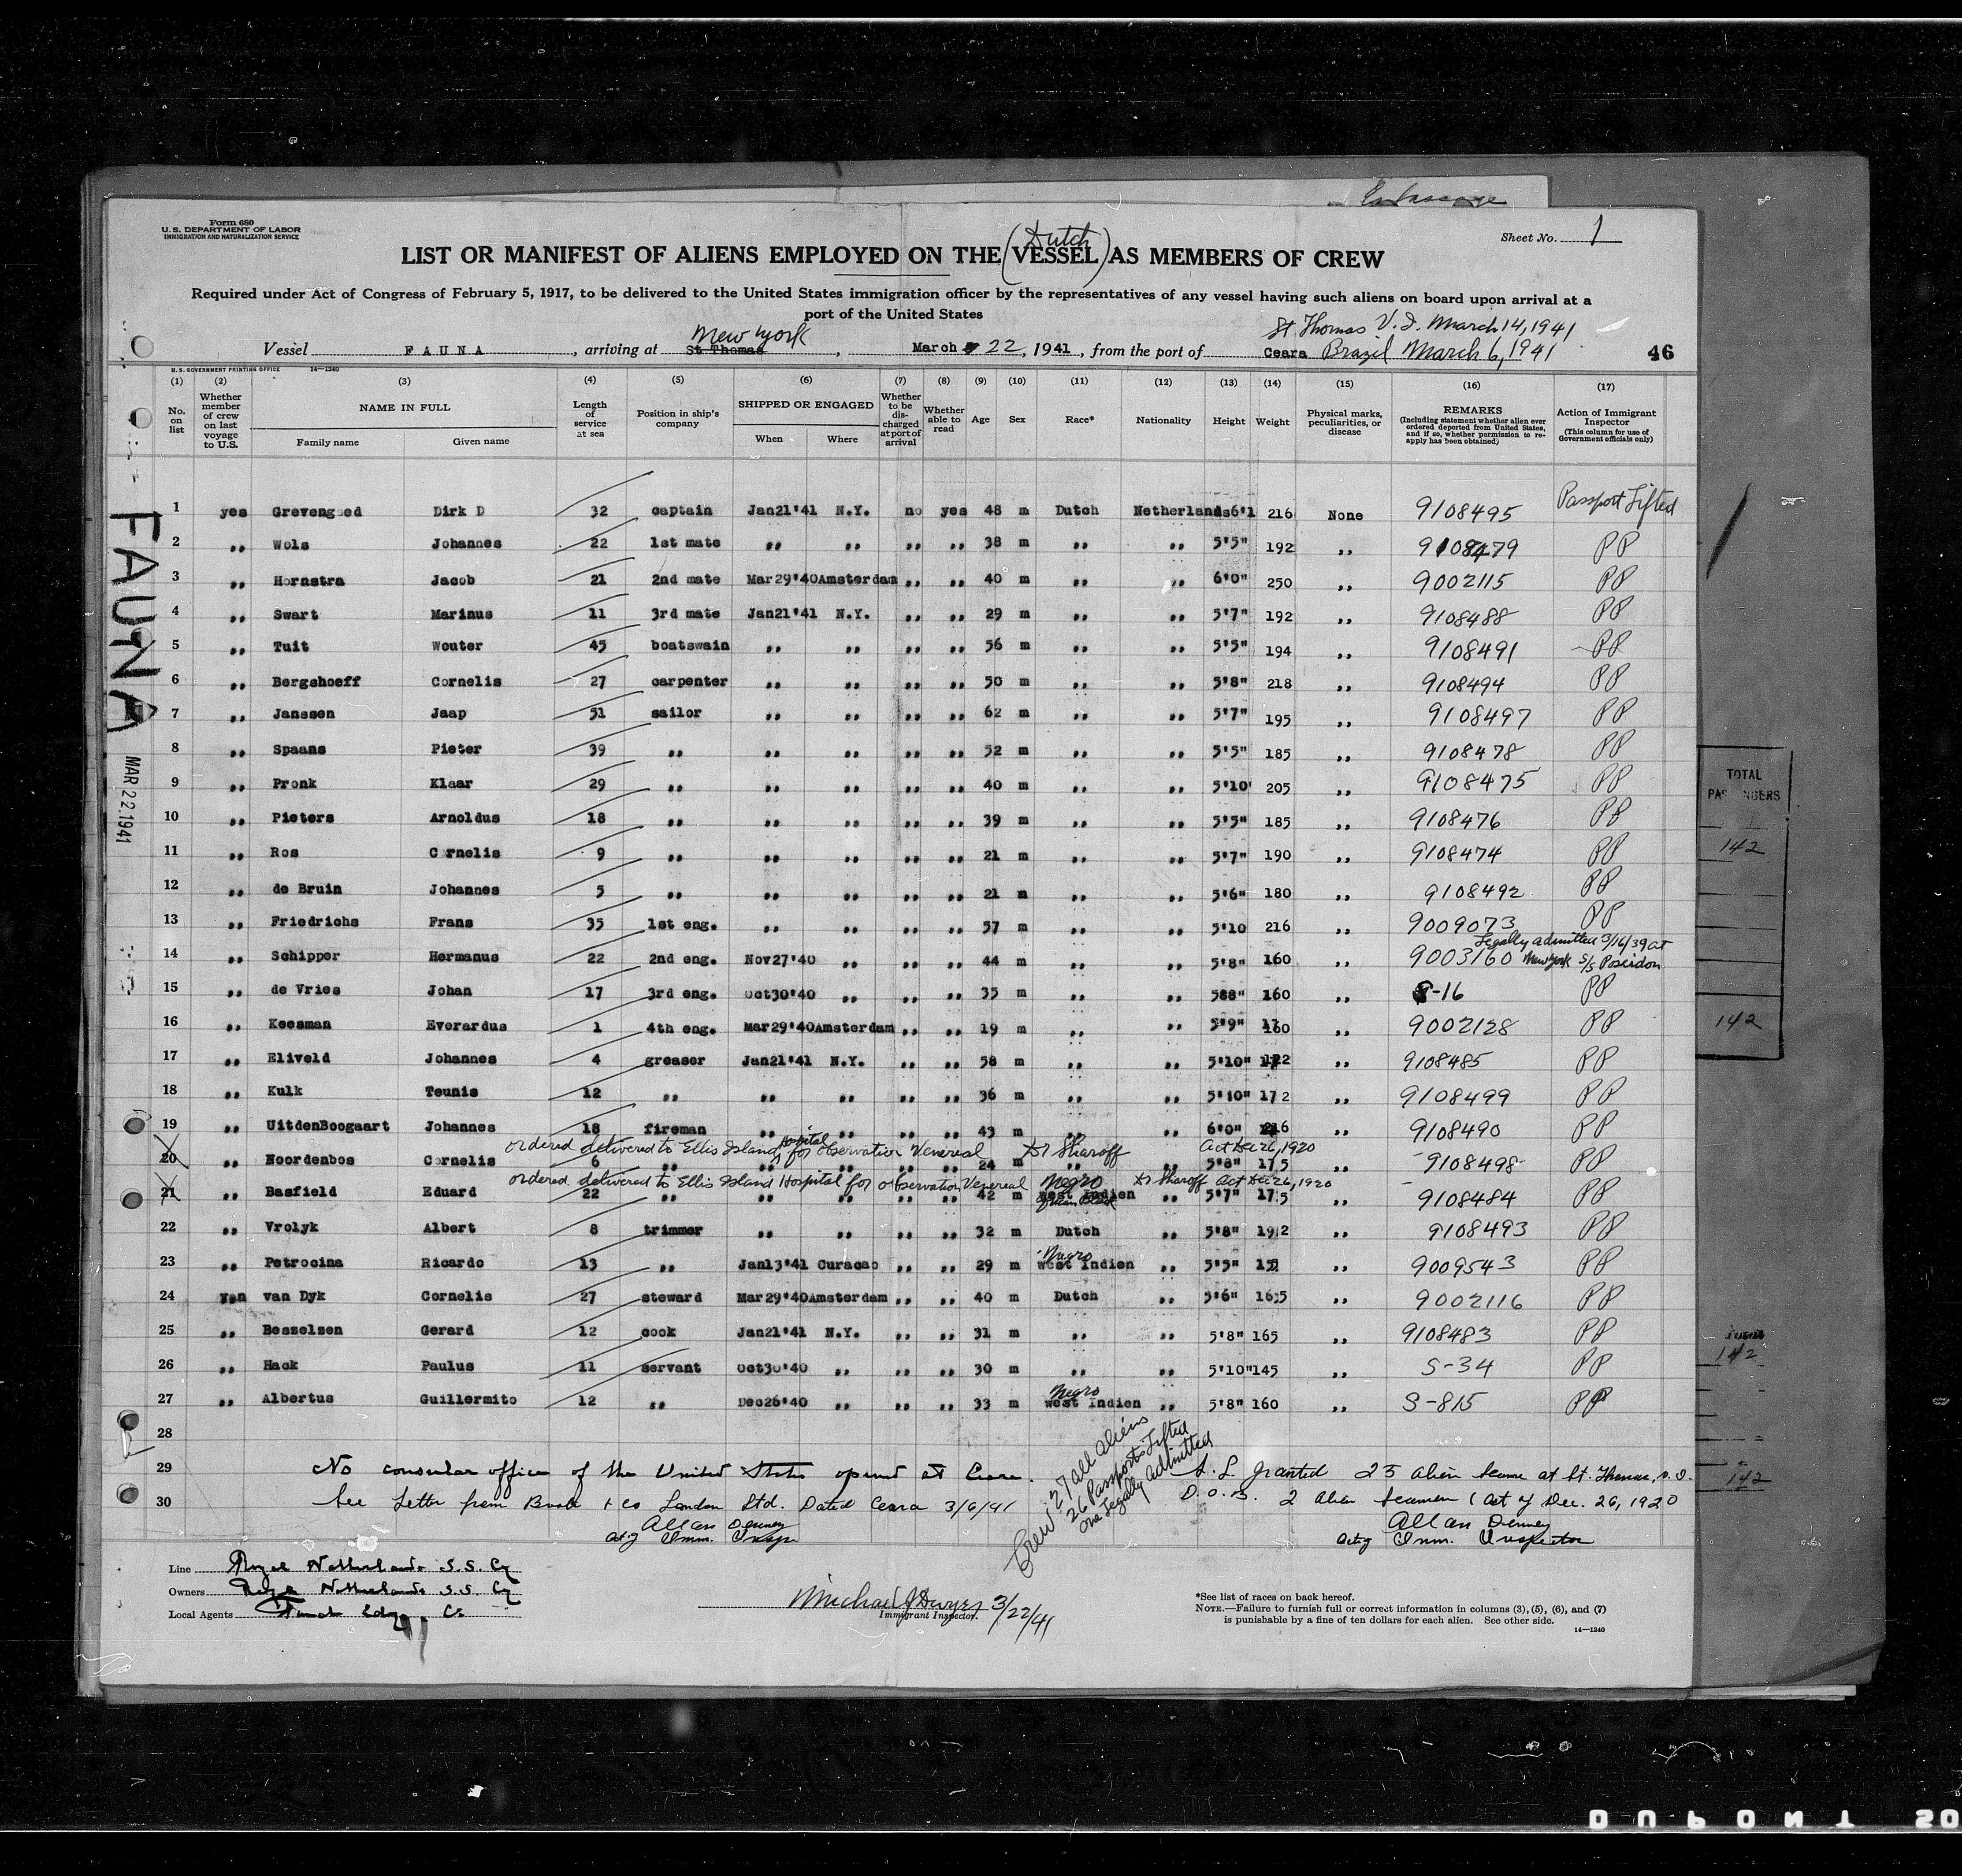 Form 680
U.S. DEPARTMENT OF LABOR
IMMIGRATION AND NATURALIZATION SERVICE
Sheet No. 1
Dutch
LIST OR MANIFEST OF ALIENS EMPLOYED ON THE (VESSEL) AS MEMBERS OF CREW
Required under Act of Congress of February 5, 1917, to be delivered to the United States immigration officer by the representatives of any vessel having such aliens on board upon arrival at a
port of the United States
New York St Thomas V.I. March 14, 1941
Vessel FAUNA, arriving at St Thomas, March 22, 1941, from the port of Ceara Brazil March 6, 1941
46
U.S. GOVERNMENT PRINTING OFFICE 14—1240
(1) (2) (3) (4) (5) (6) (7) (8) (9) (10) (11) (12) (13) (14) (15) (16) (17)
No. on list
Whether member of crew on last voyage to U.S.
NAME IN FULL
Family name Given name
Length of service at sea
Position in ship's company
SHIPPED OR ENGAGED
When Where
Whether to be discharged at port of arrival
Whether able to read
Age
Sex
Race*
Nationality
Height
Weight
Physical marks, peculiarities, or disease
REMARKS
(Including statement whether alien ever ordered deported from United States, and if so, whether permission to reapply has been obtained)
Action of Immigrant Inspector
(This column for use of Government officials only)
1 yes Grevengoed Dirk D 32 captain Jan21'41 N.Y. no yes 48 m Dutch Netherlands 6'1 216 None 9108495 Passport Lifted
2 ,, Wols Johannes 22 1st mate ,, ,, ,, ,, 38 m ,, ,, 5'5" 192 ,, 9108479 PP
3 ,, Hornstra Jacob 21 2nd mate Mar29'40 Amsterdam ,, ,, 40 m ,, ,, 6'0" 250 ,, 9002115 PP
4 ,, Swart Marinus 11 3rd mate Jan21'41 N.Y. ,, ,, 29 m ,, ,, 5'7" 192 ,, 9108488 PP
5 ,, Tuit Wouter 45 boatswain ,, ,, ,, ,, 56 m ,, ,, 5'5" 194 ,, 9108491 PP
6 ,, Bergshoeff Cornelis 27 carpenter ,, ,, ,, ,, 50 m ,, ,, 5'8" 218 ,, 9108494 PP
7 ,, Janssen Jaap 51 sailor ,, ,, ,, ,, 62 m ,, ,, 5'7" 195 ,, 9108497 PP
8 ,, Spaans Pieter 39 ,, ,, ,, ,, ,, 52 m ,, ,, 5'5" 185 ,, 9108478 PP
9 ,, Pronk Klaar 29 ,, ,, ,, ,, ,, 40 m ,, ,, 5'10' 205 ,, 9108475 PP
10 ,, Pieters Arnoldus 18 ,, ,, ,, ,, ,, 39 m ,, ,, 5'5" 185 ,, 9108476 PP
11 ,, Ros Cornelis 9 ,, ,, ,, ,, ,, 21 m ,, ,, 5'7" 190 ,, 9108474 PP
12 ,, de Bruin Johannes 5 ,, ,, ,, ,, ,, 21 m ,, ,, 5'6" 180 ,, 9108492 PP
13 ,, Friedrichs Frans 35 1st eng. ,, ,, ,, ,, 57 m ,, ,, 5'10 216 ,, 9009073 PP
Legally admitted 3/16/39 at
14 ,, Schipper Hermanus 22 2nd eng. Nov27'40 ,, ,, ,, 44 m ,, ,, 5'8" 160 ,, 9003160 New York S/S Poseidon
15 ,, de Vries Johan 17 3rd eng. Oct30'40 ,, ,, ,, 35 m ,, ,, 588" 160 ,, S-16 PP
16 ,, Keesman Everardus 1 4th eng. Mar29'40 Amsterdam ,, ,, 19 m ,, ,, 5'9" 160 ,, 9002128 PP
17 ,, Eliveld Johannes 4 greaser Jan21'41 N.Y. ,, ,, 58 m ,, ,, 5'10" ,, 9108485 PP
18 ,, Kulk Teunis 12 ,, ,, ,, ,, ,, 36 m ,, ,, 5'10" 172 ,, 9108499 PP
19 ,, UitdenBoogaart Johannes 18 fireman ,, ,, ,, ,, 43 m ,, ,, 6'0" 216 ,, 9108490 PP
ordered delivered to Ellis Island Hospital for observation Venereal Dr Sharoff Act Dec 26, 1920
20 ,, Noordenbos Cornelis 6 ,, ,, ,, ,, ,, 24 m ,, ,, 5'8" 175 ,, 9108498 PP
ordered delivered to Ellis Island Hospital for observation Venereal Negro Dr Sharoff Act Dec 26, 1920
21 ,, Basfield Eduard 22 ,, ,, ,, ,, ,, 42 m West Indien 5'7" 175 ,, 9108484 PP
22 ,, Vrolyk Albert 8 trimmer ,, ,, ,, ,, 32 m Dutch ,, 5'8" 192 ,, 9108493 PP
Negro
23 ,, Petrocina Ricardo 13 ,, Jan13'41 Curacao ,, ,, 29 m west Indien ,, 5'5" ,, 9009543 PP
24 van Dyk Cornelis 27 steward Mar29'40 Amsterdam ,, ,, 40 m Dutch ,, 5'6" 165 ,, 9002116 PP
25 ,, Beszelsen Gerard 12 cook Jan21'41 N.Y. ,, ,, 31 m ,, ,, 5'8" 165 ,, 9108483 PP
26 ,, Hack Paulus 11 servant Oct30'40 ,, ,, ,, 30 m ,, ,, 5'10" 145 ,, S-34 PP
Negro
27 ,, Albertus Guillermito 12 ,, Dec26'40 ,, ,, ,, 33 m west Indien ,, 5'8" 160 ,, S-815 PP
28
29 No consular office of the United States opened at Ceara. S.L. granted 25 alien seamen at St. Thomas, V.I.
30 See Letter from Booth & Co London Ltd. Dated Ceara 3/6/41 D.O.B. 2 alien seamen (Act of Dec. 26, 1920
Crew 27 all aliens
26 Passports lifted
One Legally Admitted
Allan Denney
Actg Imm. Insp
Allan Denney
Actg Imm. Inspector
Line Royal Netherlands S.S. Cy
Owners Royal Netherlands S.S. Cy
Local Agents
Michael J Dwyer 3/22/41
Immigrant Inspector.
*See list of races on back hereof.
NOTE.—Failure to furnish full or correct information in columns (3), (5), (6), and (7)
is punishable by a fine of ten dollars for each alien. See other side.
14—1240
FAUNA
MAR 22 1941
TOTAL
142
142
142
142
DUPONT